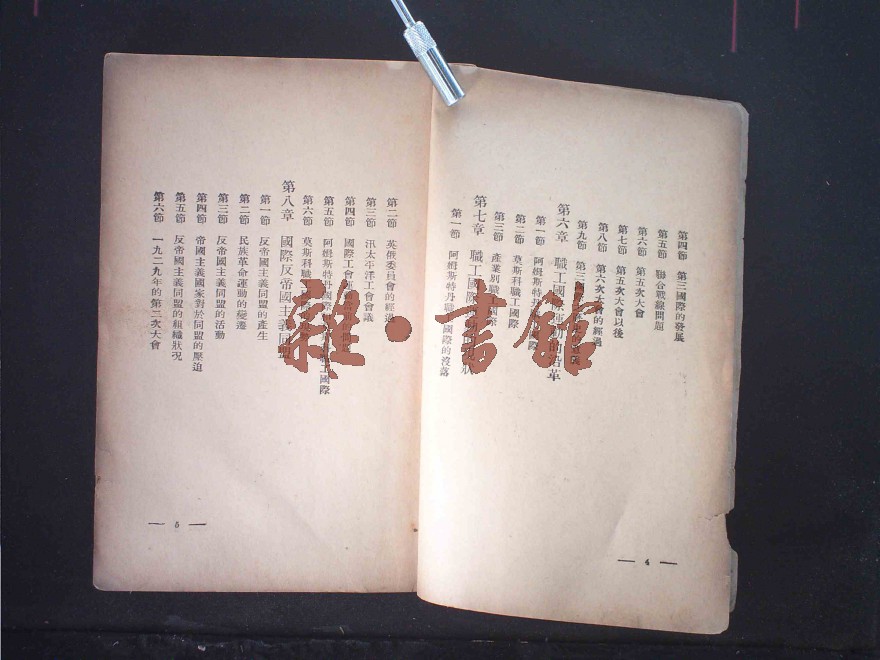 第四節 第三國際的發展
第五節 聯合戰線問題
第六節 第五次大會
第七節 第五次大會以後
第八節 第六次大會的經過
第九節 第三國際
第六章 職工國際運動的沿革
第一節 阿姆斯特丹國際
第二節 莫斯科職工國際
第三節 產業別職工國際
第七章 職工國際
第一節 阿姆斯特丹 國際的沒落
— 4 —
第二節 英俄委員會的經過
第三節 汎太平洋工會會議
第四節 國際工會運動
第五節 阿姆斯特丹國際 職工國際
第六節 莫斯科職工
第八章 國際反帝國主義同盟
第一節 反帝國主義同盟的產生
第二節 民族革命運動的變遷
第三節 反帝國主義同盟的活動
第四節 帝國主義國家對於同盟的壓迫
第五節 反帝國主義同盟的組織狀況
第六節 一九二九年的第二次大會
— 5 —
雜·書館